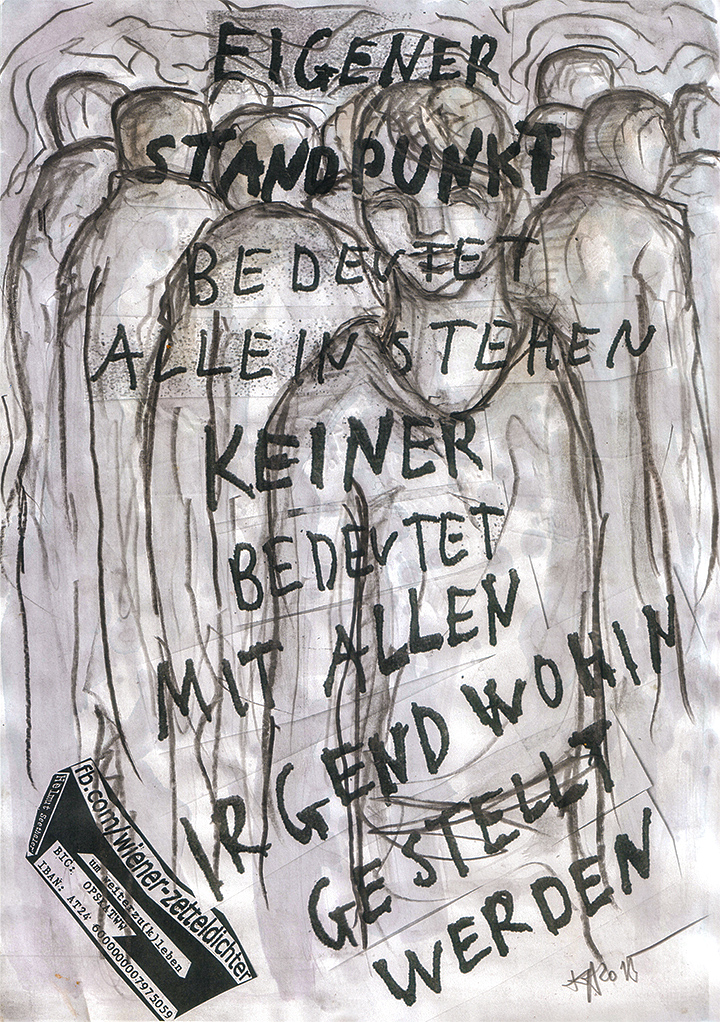 EIGENER
STANDPUNKT
BEDEUTET
ALLEIN STEHEN
KEINER
BEDEUTET
MIT ALLEN
IRGENDWOHIN
GESTELLT
WERDEN
Helmut Seethaler
fb.com/wiener-zetteldichter
um weiterzu(k)leben
BIC: OPSKATWW
IBAN: AT24 6000000007975059